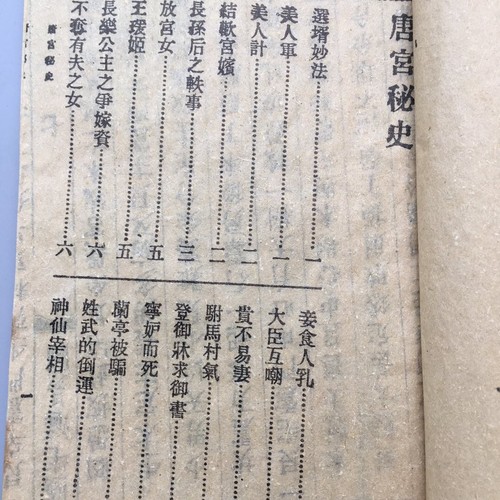 唐宮秘史
選壻妙法……一
美人軍……一
美人計……二
結歡宮嬪……二
長孫后之軼事……三
放宮女……五
王瑗姬……五
長樂公主之爭嫁資……六
不奪有夫之女……六
妾食人乳
大臣互嘲
貴不易妻
駙馬村氣
登御牀求御書
寧妒而死
蘭亭被騙
姓武的倒運
神仙宰相
唐宮秘史
一